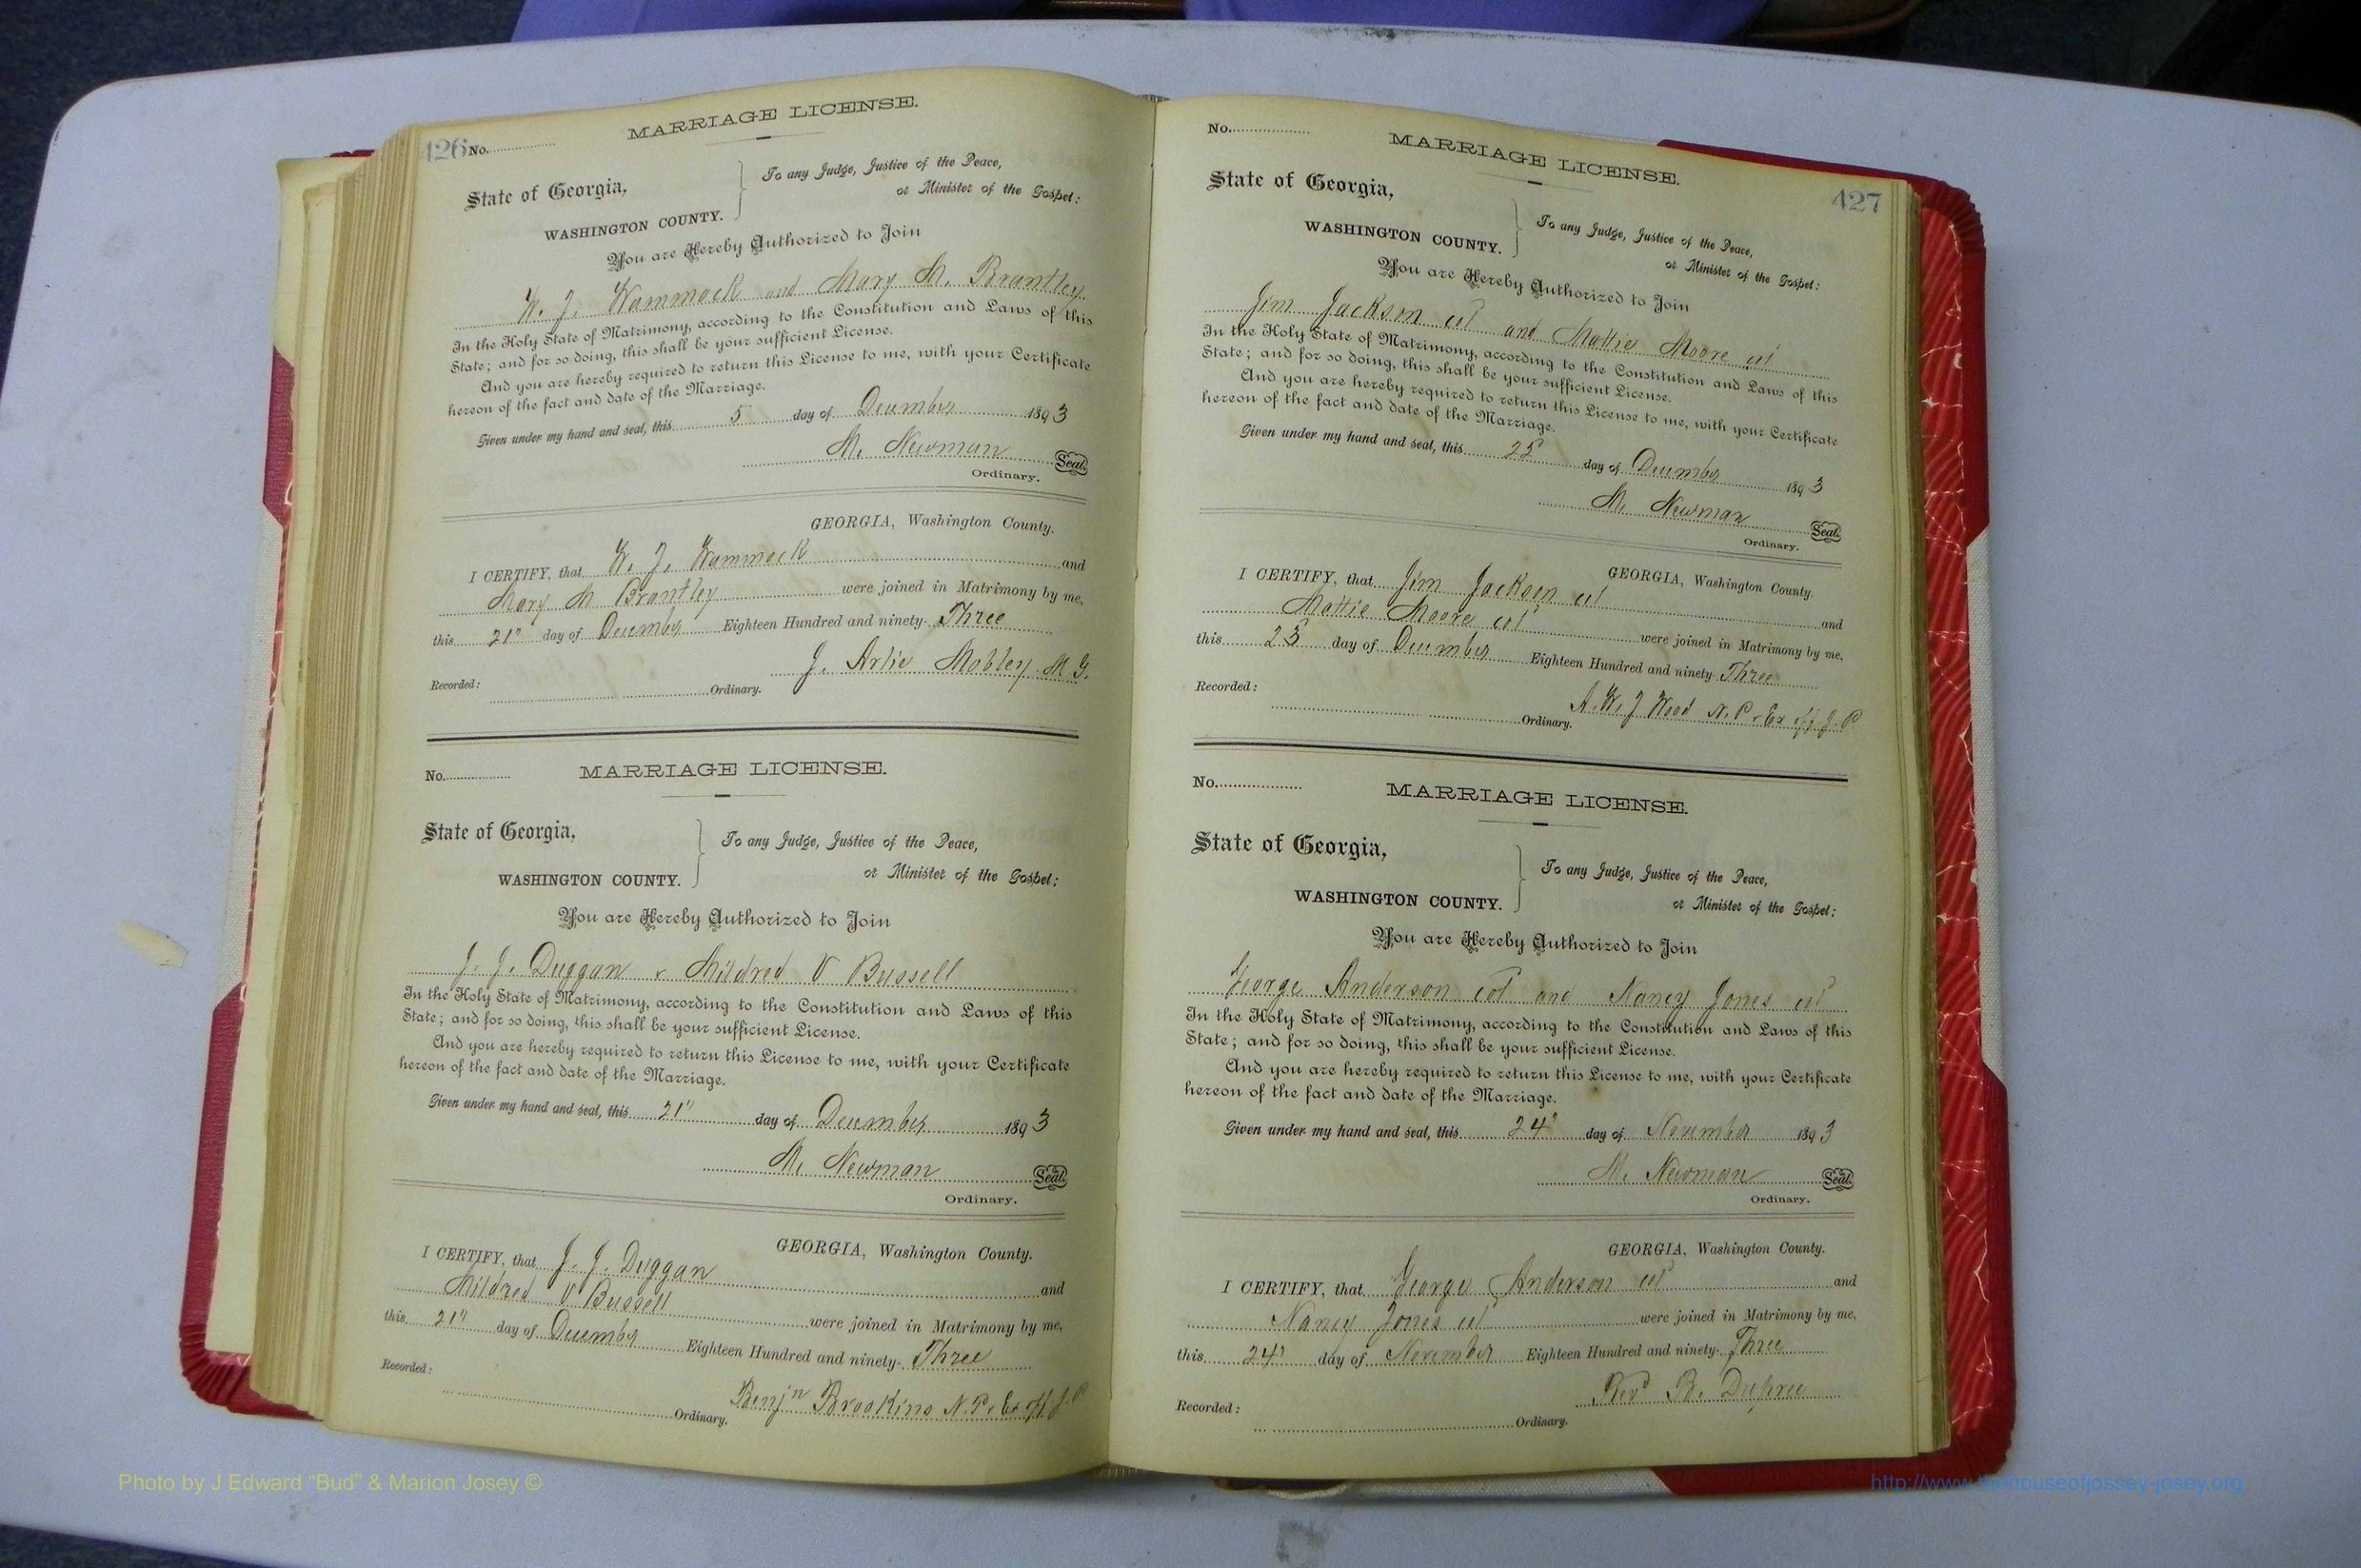 426 No.
MARRIAGE LICENSE.
State of Georgia,
WASHINGTON COUNTY.
To any Judge, Justice of the Peace,
or Minister of the Gospel:
You are Hereby Authorized to Join
W. J. Wammock and Mary M. Brantley
In the Holy State of Matrimony, according to the Constitution and Laws of this
State; and for so doing, this shall be your sufficient License.
And you are hereby required to return this License to me, with your Certificate
hereon of the fact and date of the Marriage.
Given under my hand and seal, this 5 day of December 1893
M. Newman Seal.
Ordinary.
GEORGIA, Washington County.
I CERTIFY, that W. J. Wammock and
Mary M Brantley were joined in Matrimony by me,
this 21" day of December Eighteen Hundred and ninety- Three
J. Arlie Mobley. M. G.
Recorded: Ordinary.
No.
MARRIAGE LICENSE.
State of Georgia,
WASHINGTON COUNTY.
To any Judge, Justice of the Peace,
or Minister of the Gospel:
You are Hereby Authorized to Join
J. J. Duggan & Mildred V Bussell
In the Holy State of Matrimony, according to the Constitution and Laws of this
State; and for so doing, this shall be your sufficient License.
And you are hereby required to return this License to me, with your Certificate
hereon of the fact and date of the Marriage.
Given under my hand and seal, this 21" day of December 1893
M. Newman Seal.
Ordinary.
GEORGIA, Washington County.
I CERTIFY, that J. J. Duggan and
Mildred V Bussell were joined in Matrimony by me,
this 21" day of December Eighteen Hundred and ninety- Three
Benjn Brookins N.P. & Ex off J. P
Recorded: Ordinary.
No.
MARRIAGE LICENSE.
427
State of Georgia,
WASHINGTON COUNTY.
To any Judge, Justice of the Peace,
or Minister of the Gospel:
You are Hereby Authorized to Join
Jim Jackson col and Mattie Moore col
In the Holy State of Matrimony, according to the Constitution and Laws of this
State; and for so doing, this shall be your sufficient License.
And you are hereby required to return this License to me, with your Certificate
hereon of the fact and date of the Marriage.
Given under my hand and seal, this day of December 1893
M. Newman Seal.
Ordinary.
GEORGIA, Washington County.
I CERTIFY, that Jim Jackson col and
Mattie Moore col were joined in Matrimony by me,
this day of December Eighteen Hundred and ninety- Three
A. W. J Wood N. P & Ex off J. P
Recorded: Ordinary.
No.
MARRIAGE LICENSE.
State of Georgia,
WASHINGTON COUNTY.
To any Judge, Justice of the Peace,
or Minister of the Gospel:
You are Hereby Authorized to Join
George Anderson col and Nancy Jones col
In the Holy State of Matrimony, according to the Constitution and Laws of this
State; and for so doing, this shall be your sufficient License.
And you are hereby required to return this License to me, with your Certificate
hereon of the fact and date of the Marriage.
Given under my hand and seal, this 24" day of November 1893
M. Newman Seal.
Ordinary.
GEORGIA, Washington County.
I CERTIFY, that George Anderson col and
Nancy Jones col were joined in Matrimony by me,
this 24" day of November Eighteen Hundred and ninety- Three
Rev B. Dupree
Recorded: Ordinary.
Photo by J Edward “Bud” & Marion Josey ©
http://www.thehouseofjossey-josey.org